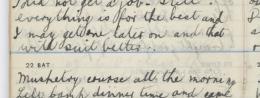 I did not get a job. Still
everything is for the best and
I may get one later on and that
will suit better.
22 SAT
Musketry course all the morning
Left camp dinner time and came